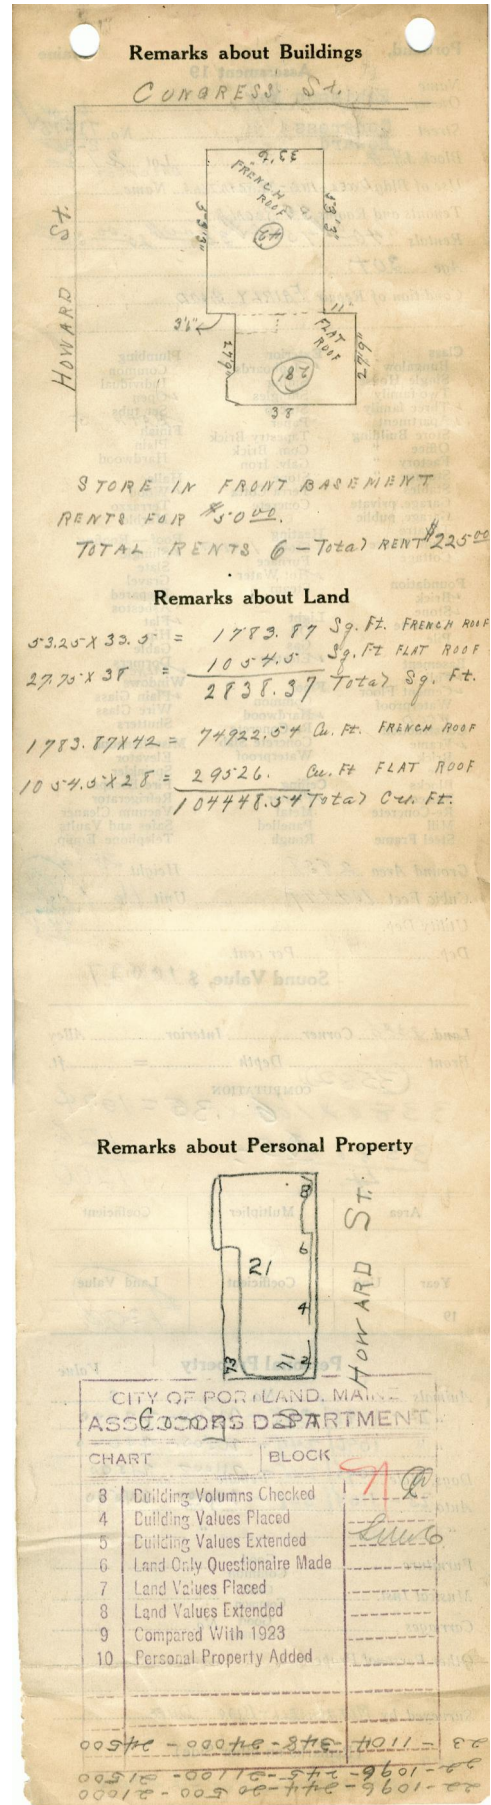 Remarks about Buildings
CONGRESS St.
HOWARD St.
33'6"
FRENCH ROOF
53'3"
53'3"
42
11'
3'6"
FLAT ROOF
27'9"
27'9"
28'
38
STORE IN FRONT BASEMENT
RENTS FOR $50.00.
TOTAL RENTS 6 - Total RENT $225.00
Remarks about Land
53.25 X 33.5 = 1783.87 Sq. Ft. FRENCH ROOF
27.75 X 38 = 1054.5 Sq. Ft FLAT ROOF
2838.37 Total Sq. Ft.
1783.87 X 42 = 74922.54 Cu. Ft. FRENCH ROOF
1054.5 X 28 = 29526. Cu. Ft FLAT ROOF
104448.54 Total Cu. Ft.
Remarks about Personal Property
8
6
21
4
HOWARD St.
73
71 2
CITY OF PORTLAND, MAINE
Cong. St
ASSESSORS DEPARTMENT
CHART BLOCK
3 Building Volumns Checked
4 Building Values Placed
5 Building Values Extended
6 Land Only Questionaire Made
7 Land Values Placed
8 Land Values Extended
9 Compared With 1923
10 Personal Property Added
23 = 1104 - 348 - 24000 - 24500
22 - 1096 - 245 - 21100 - 21500
22 - 1096 - 244 - 20500 - 21000